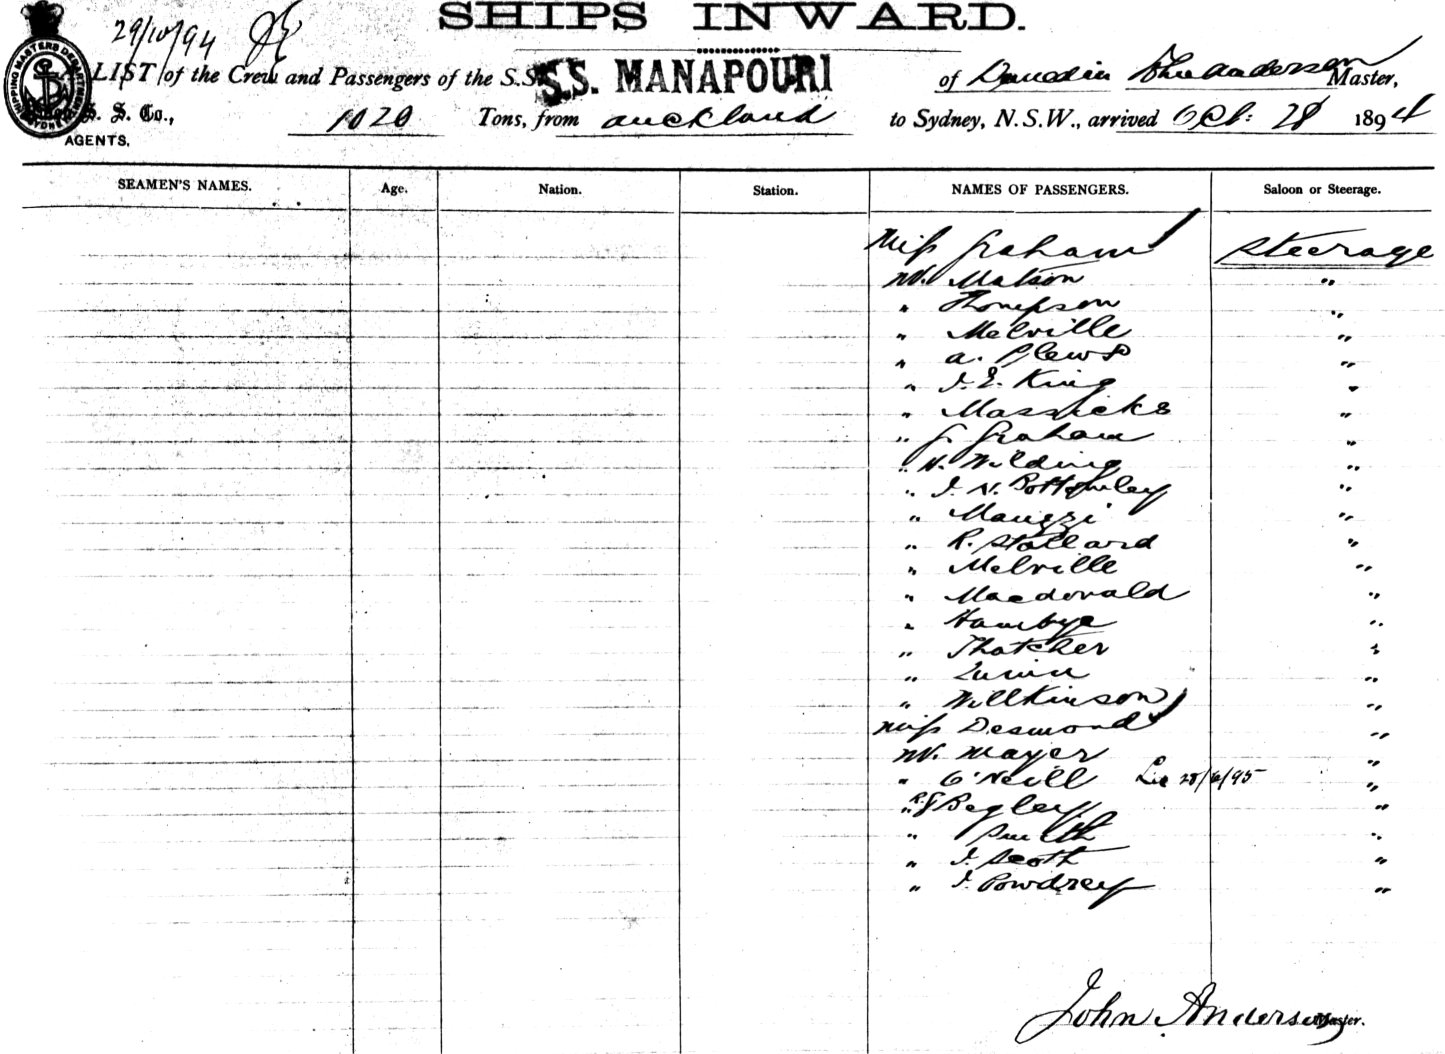 SHIPS INWARD.
29/10/94
LIST of the Crew and Passengers of the S.S. S.S. MANAPOURI of Dunedin John Anderson Master,
S. S. Co., 1020 Tons, from Auckland to Sydney, N.S.W., arrived Oct: 28 1894
AGENTS,
SEAMEN'S NAMES. Age. Nation. Station. NAMES OF PASSENGERS. Saloon or Steerage.
Miss Graham Steerage
Mr. Matson "
" Thompson "
" Melville "
" A. Plews "
" J. E. King "
" Massicks "
" G. Graham "
" H. Wilding "
" J. N. Bottomley "
" "
" R. Stallard "
" Melville "
" Macdonald "
" "
" Thatcher "
" Quinn "
" Willkinson "
Miss Desmond "
Mr. Mayer "
" O'Neill 28/6/95 "
" Begley "
" Smith "
" J. Scott "
" J. Powdrey "
John Anderson Master.